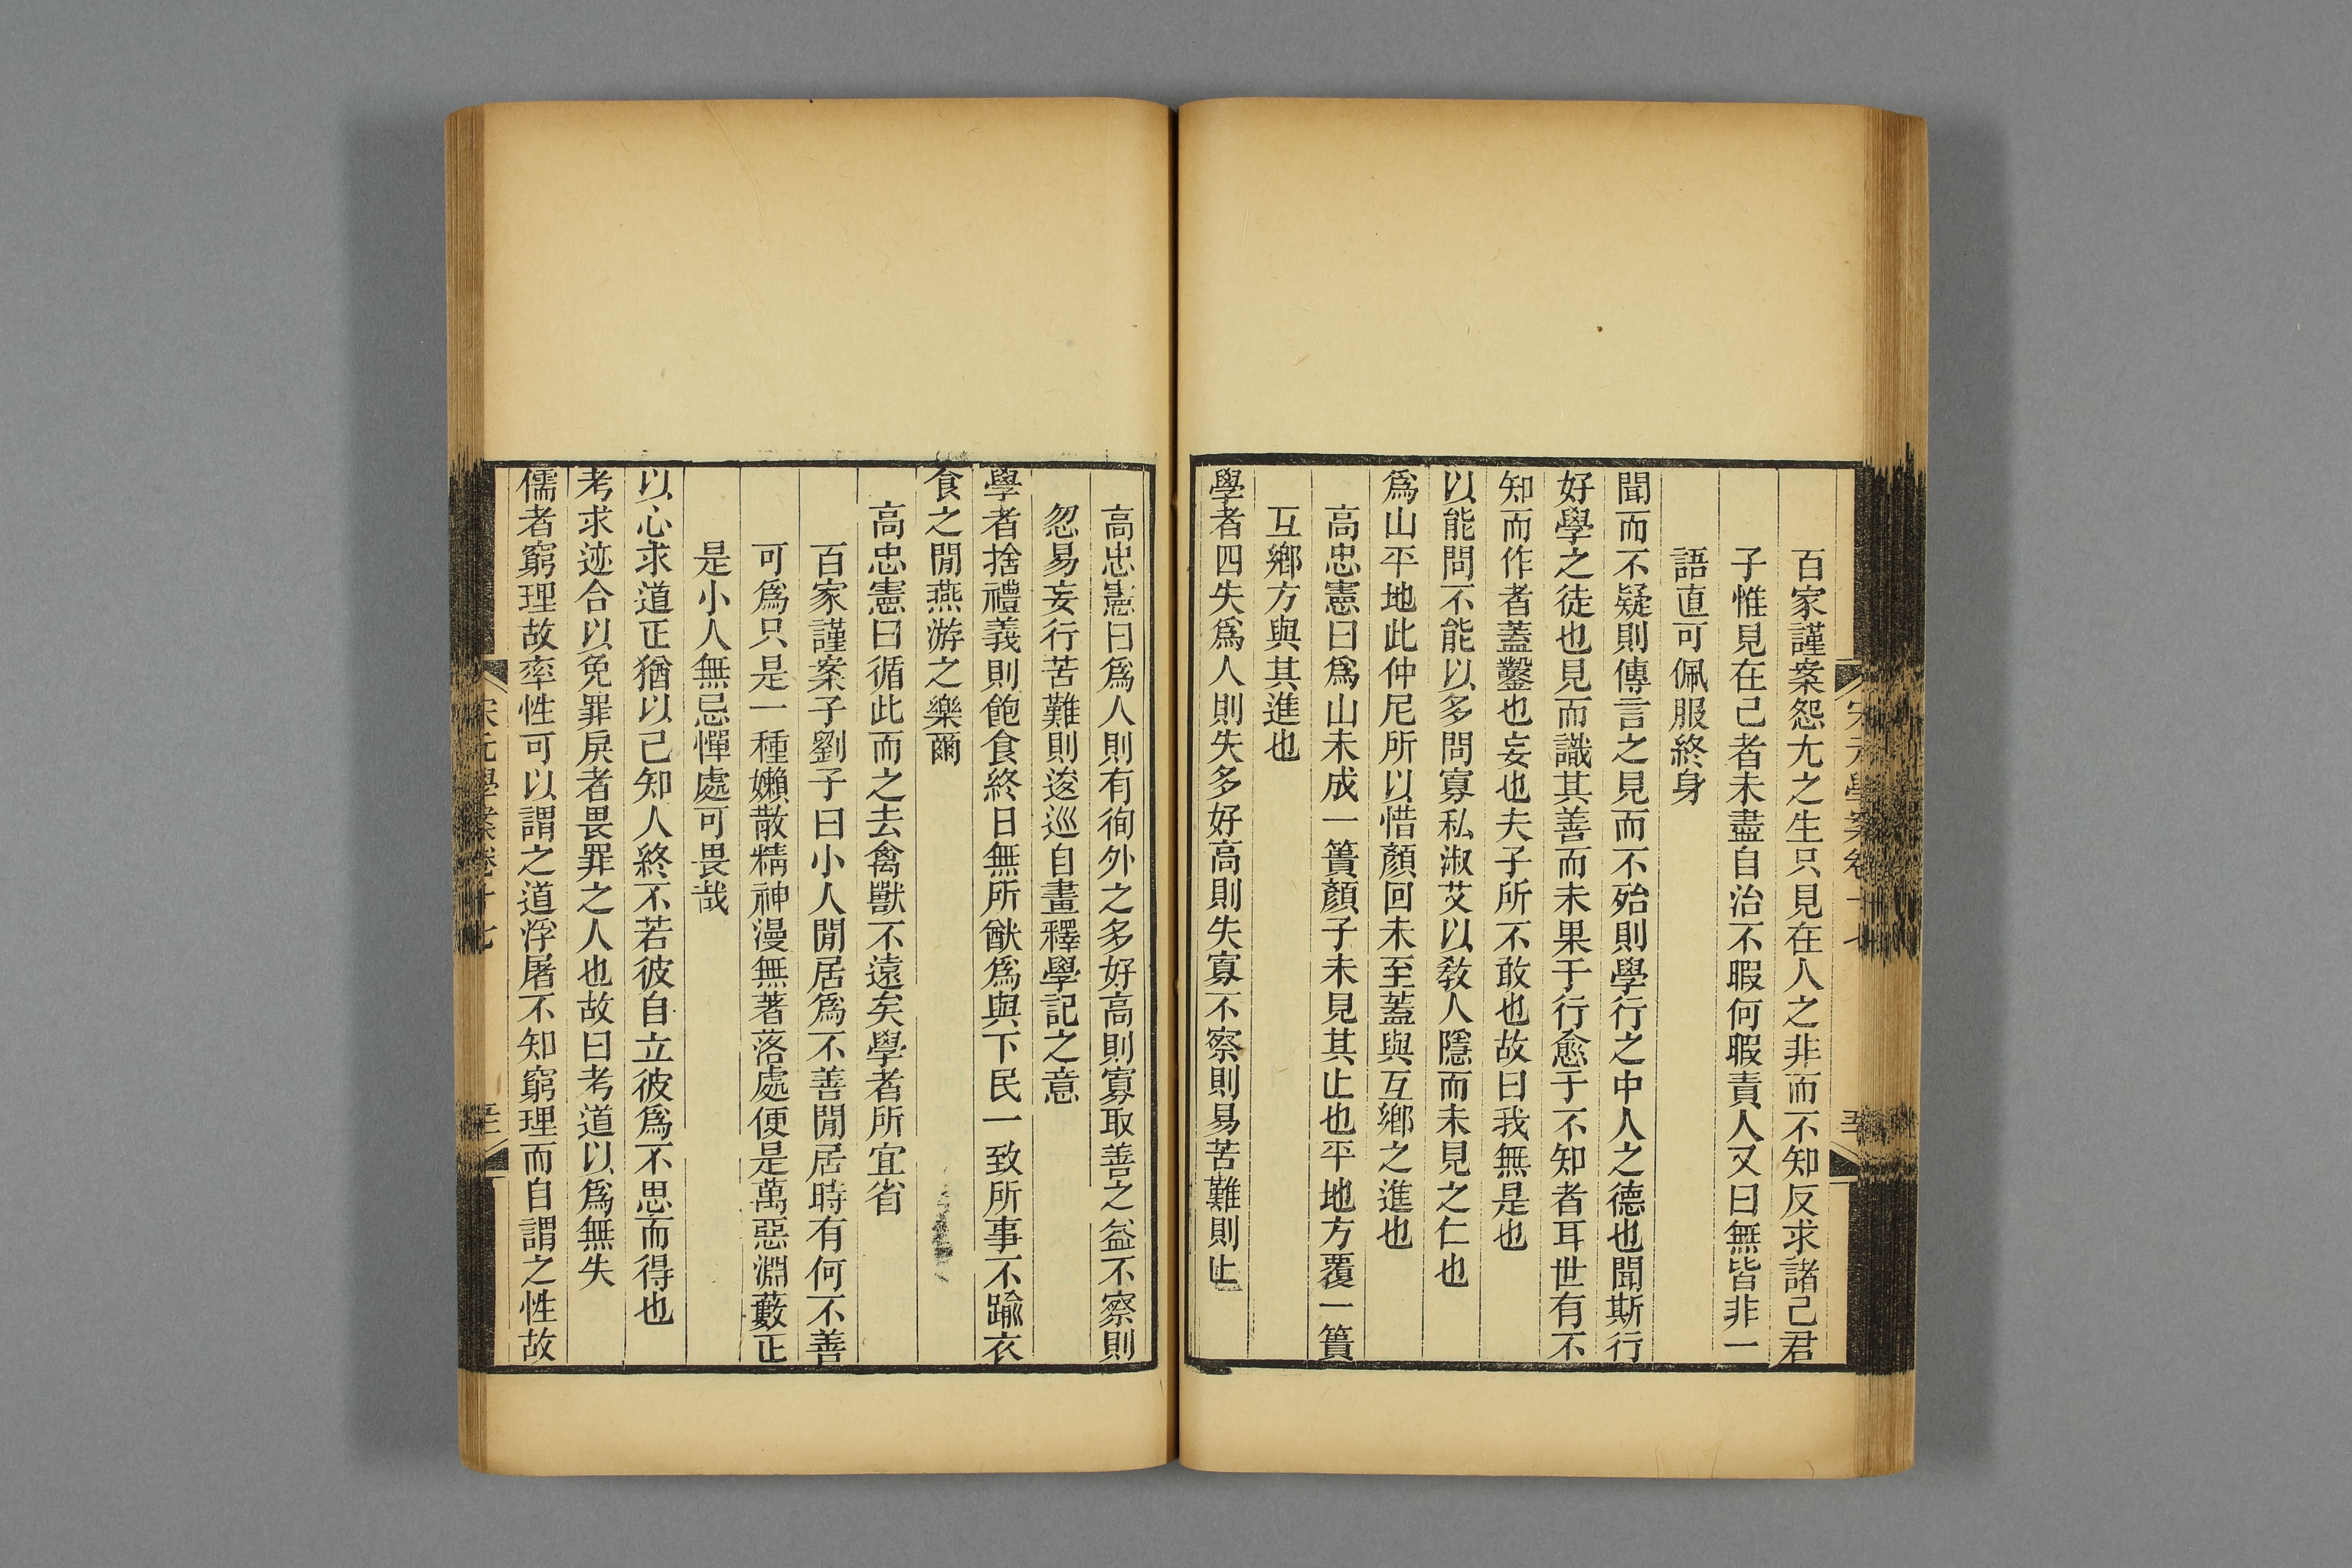 百家謹案怨尤之生只見在人之非而不知反求諸己君
子惟見在己者未盡自治不暇何暇責人又曰無皆非一
語直可佩服終身
聞而不疑則傳言之見而不殆則學行之中人之德也聞斯行
好學之徒也見而識其善而未果于行愈于不知者耳世有不
知而作者蓋鑿也妄也夫子所不敢也故曰我無是也
以能問不能以多問寡私淑艾以敎人隱而未見之仁也
爲山平地此仲尼所以惜顏回未至蓋與互鄉之進也
高忠憲曰爲山未成一簣顏子未見其止也平地方覆一簣
互鄉方與其進也
學者四失爲人則失多好高則失寡不察則易苦難則止
高忠憲曰爲人則有徇外之多好高則寡取善之益不察則
忽易妄行苦難則逡巡自畫釋學記之意
學者捨禮義則飽食終日無所猷爲與下民一致所事不踰衣
食之閒燕游之樂爾
高忠憲曰循此而之去禽獸不遠矣學者所宜省
百家謹案子劉子曰小人閒居爲不善閒居時有何不善
可爲只是一種嬾散精神漫無著落處便是萬惡淵藪正
是小人無忌憚處可畏哉
以心求道正猶以己知人終不若彼自立彼爲不思而得也
考求迹合以免罪戾者畏罪之人也故曰考道以爲無失
儒者窮理故率性可以謂之道浮屠不知窮理而自謂之性故
宋元學案卷十七